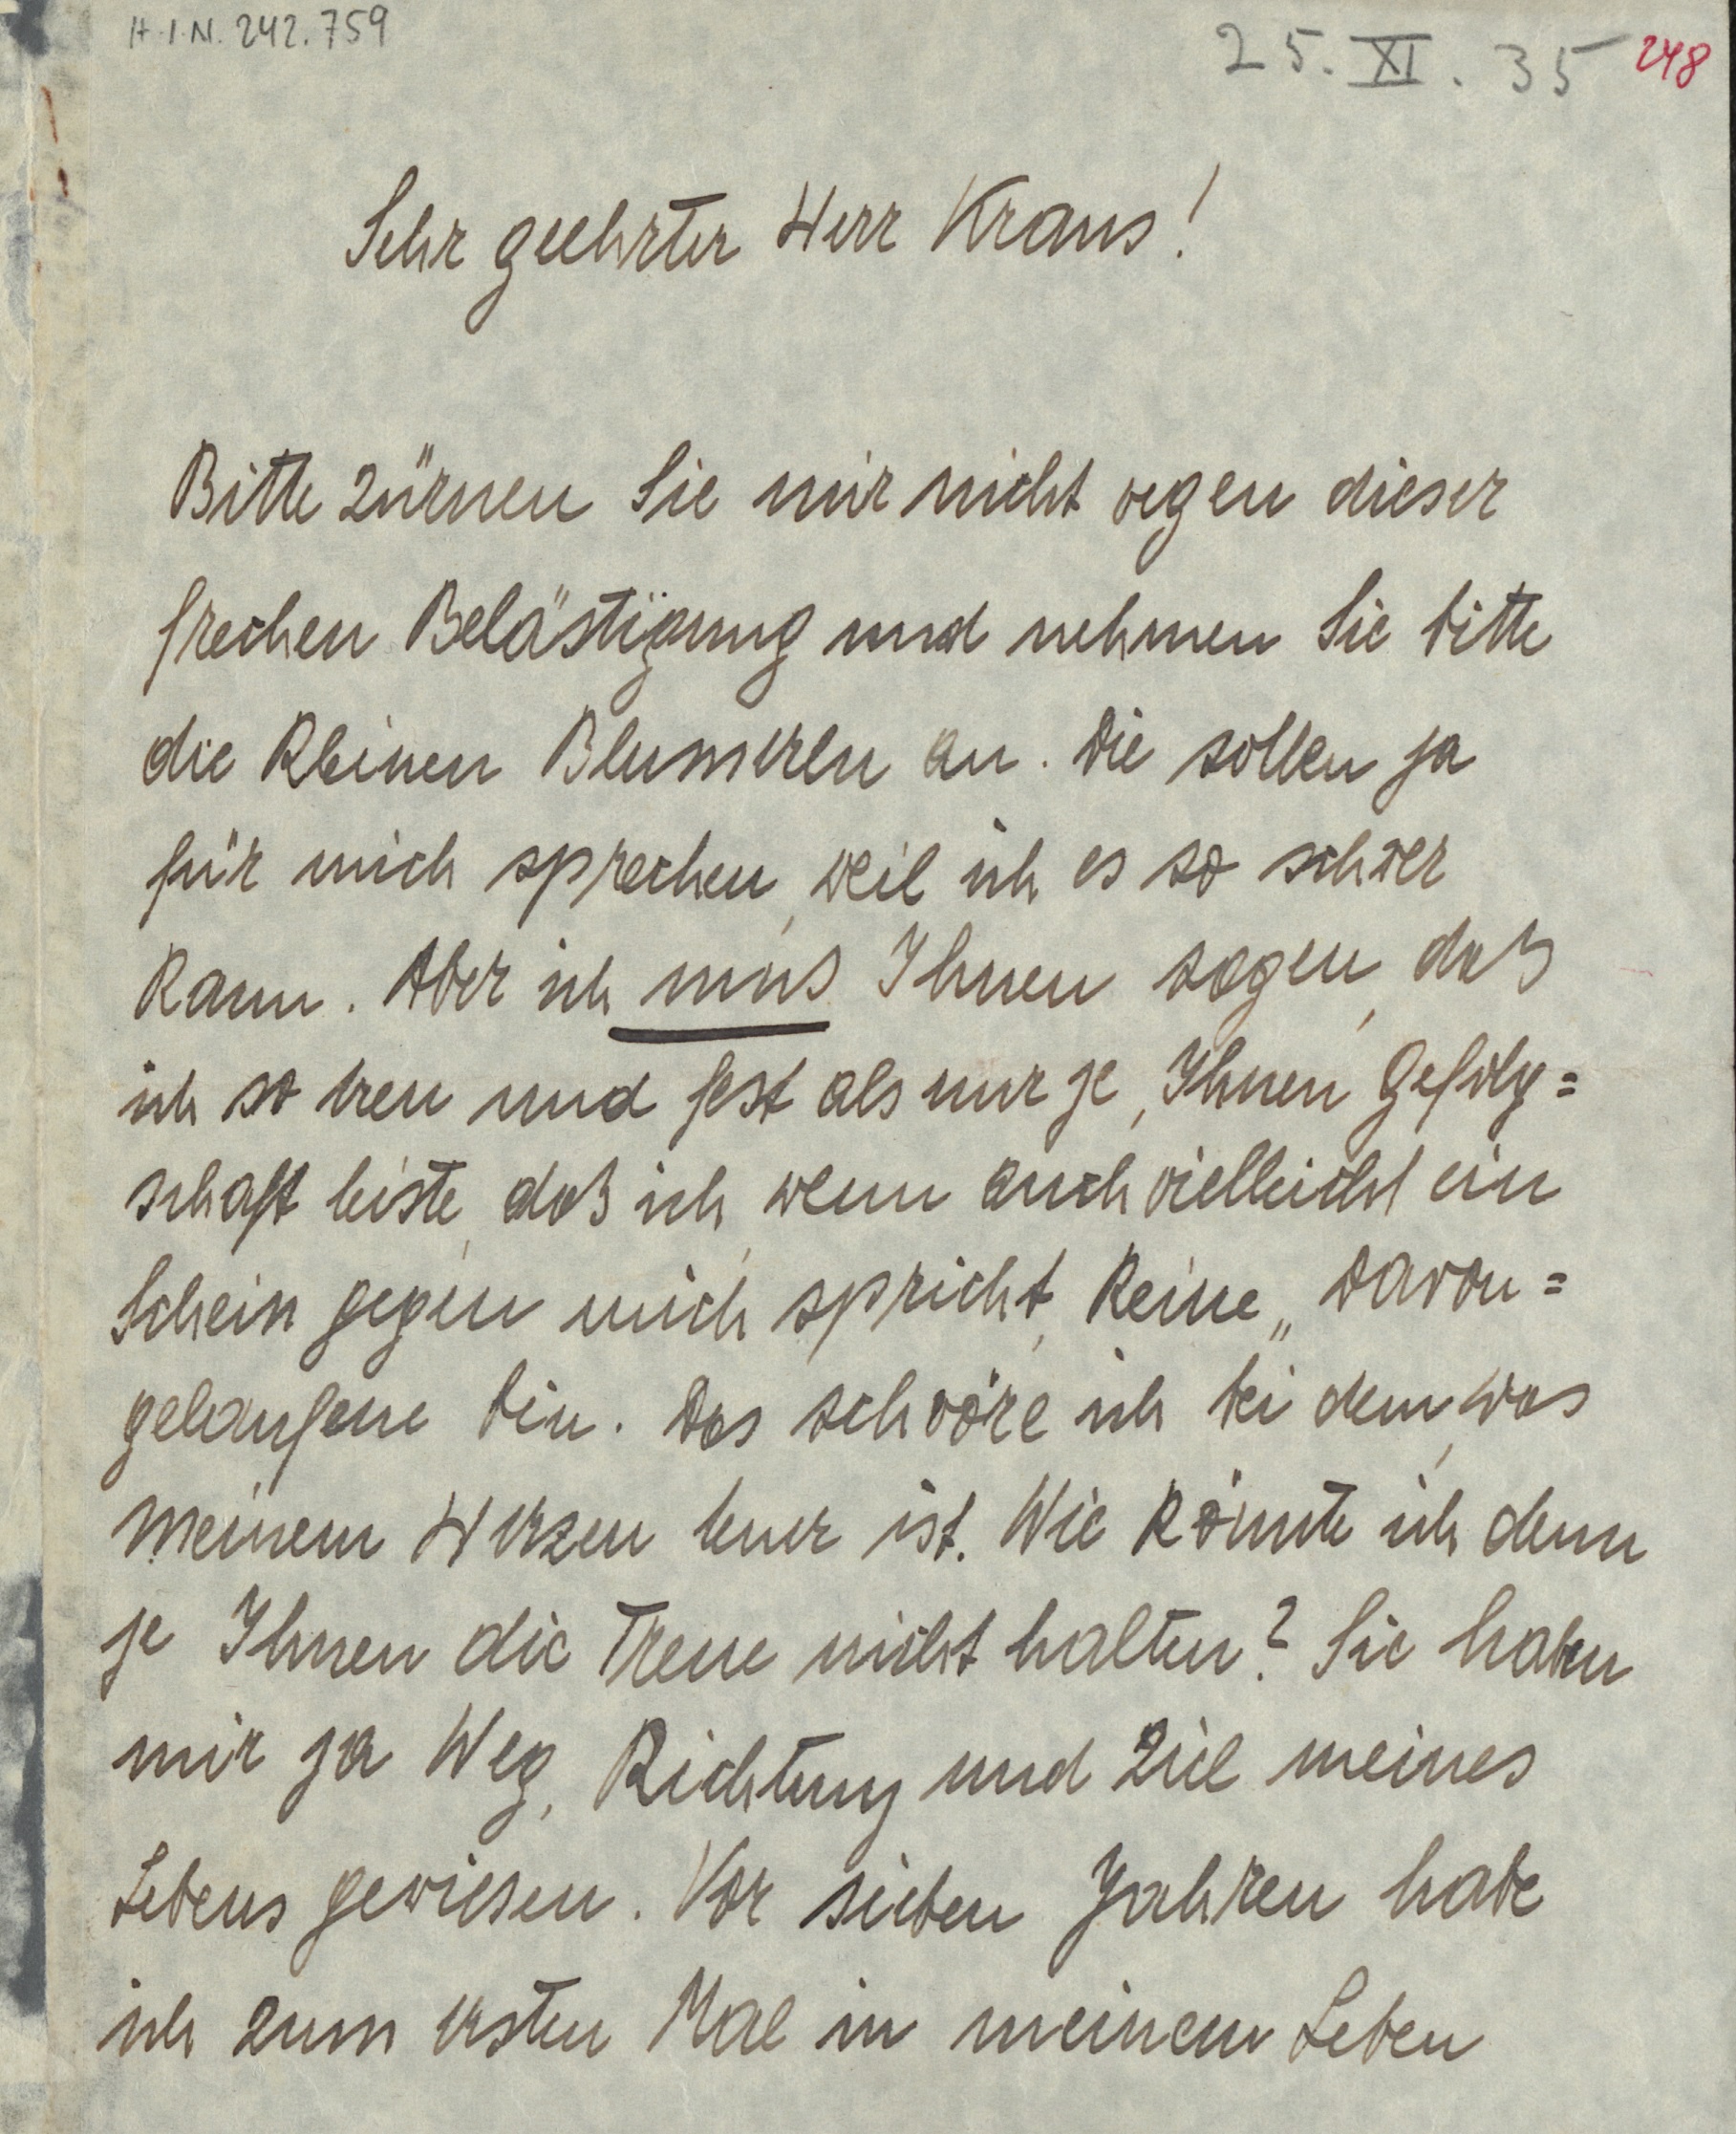 H.I.N. 242.759
25. XI. 35 248
Sehr geehrter Herr Kraus!
Bitte zürnen Sie mir nicht wegen dieser
frechen Belästigung und nehmen Sie bitte
die kleinen Blumerln an. Die sollen ja
für mich sprechen, weil ich es so schwer
kann. Aber ich muss Ihnen sagen, daß
ich so treu und fest als nur je, Ihnen Gefolg=
schaft leiste, daß ich, wenn auch vielleicht ein
Schein gegen mich spricht, keine „Davon=
gelaufene bin. Das schwöre ich bei dem, was
meinem Herzen teuer ist. Wie könnte ich denn
je Ihnen die Treue nicht halten? Sie haben
mir ja Weg, Richtung und Ziel meines
Lebens gewiesen. Vor sieben Jahren habe
ich zum ersten Mal in meinem Leben